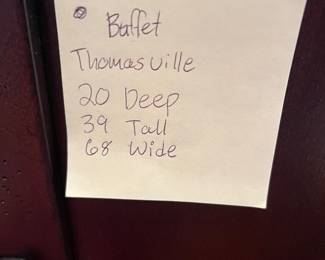 Buffet
Thomasville
20 Deep
39 Tall
68 Wide